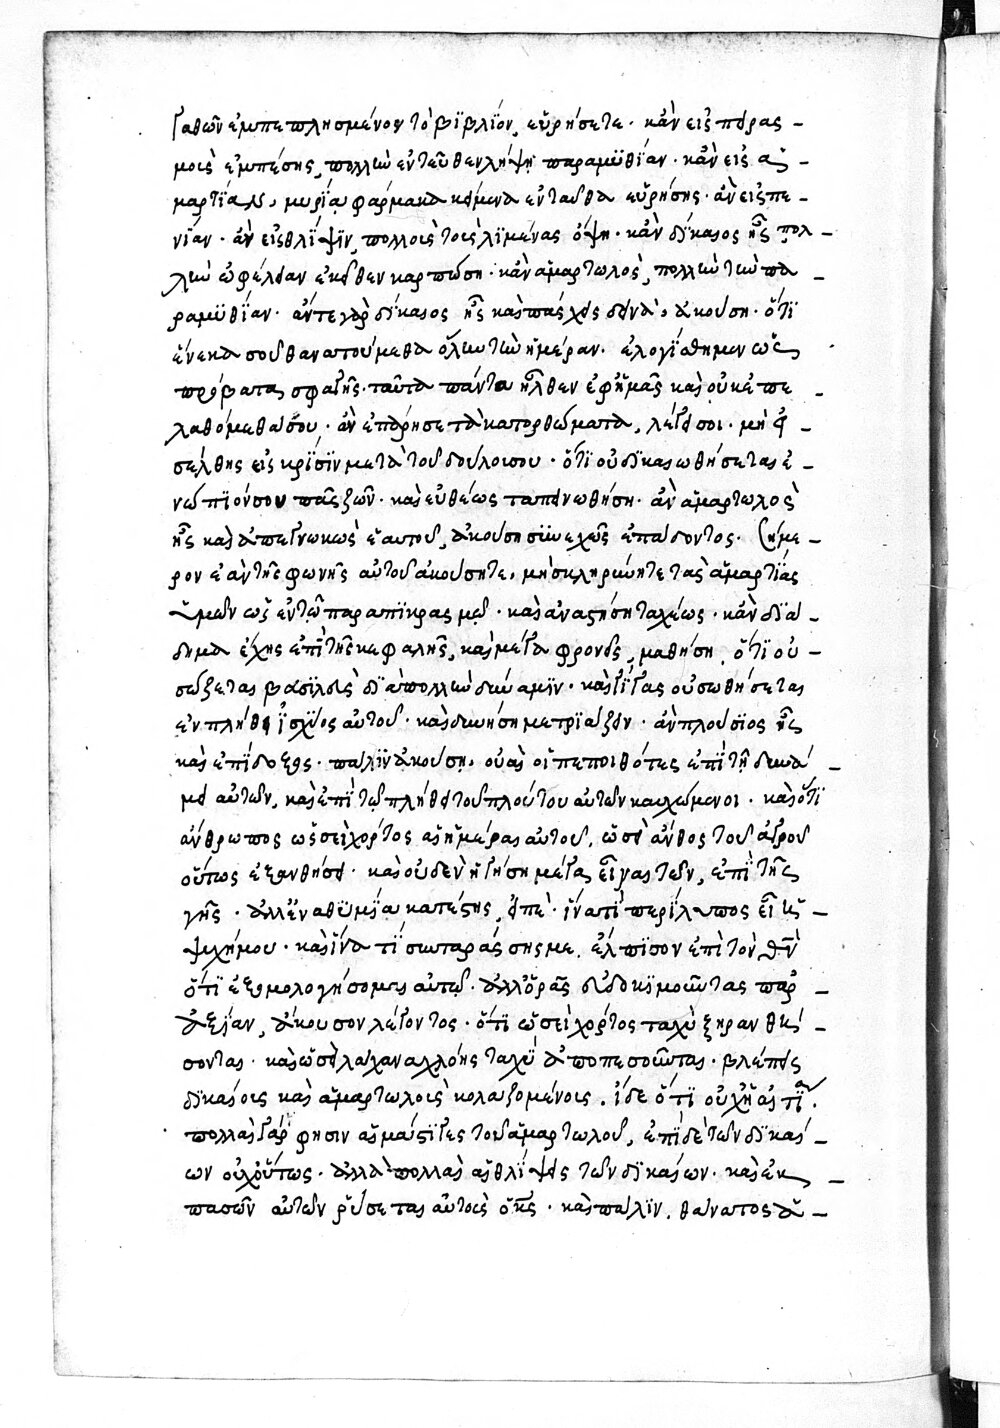 γαθῶν ἐμπεπλησμένον τὸ βϊβλΐον, εὑρήσετε· κἂν εἰς πειρασ-
μοὺς ἐμπέσης, πολλὴν ἐντεῦθεν λήψη παραμϋθΐαν· κἂν εἰς ἁ-
μαρτΐαν, μυρΐα φάρμακα κείμενα ἐνταῦθα εὑρήσης· ἂν εἰς πε-
νΐαν· ἂν εἰς θλΐψϊν, πολλοὺς τοὺς λϊμένας ὄψη· κἂν δΐκαιος ἦς πολ-
λὴν ὠφέλειαν ἐκεῖθεν καρπώση· κἂν ἁμαρτωλὸς, πολλὴν τὴν πα-
ραμϋθΐαν· ἄντε γὰρ δΐκαιος ἦς καὶ πάσχεις δεινὰ, ἀκούση· ὅτϊ
ἕνεκά σου θανατούμεθα ὅλην τὴν ἡμέραν· ἐλογΐσθημεν ὡς
πρόβατα σφαγῆς· ταῦτα πάντα ἦλθεν ἐφ' ἡμᾶς καὶ οὐκ ἐπε-
λαθόμεθά σου· ἂν ἐπάρη σε τὰ κατορθώματα, λέγει σοι· μὴ εἰ-
σέλθης εἰς κρΐσϊν μετὰ τοῦ δούλου σου· ὅτϊ οὐ δϊκαιωθήσεται ἐ-
νώπϊόν σου πᾶς ζῶν· καὶ εὐθέως ταπεινωθήση· ἂν ἁμαρτωλὸς
ἦς καὶ ἀπεγνωκὼς ἑαυτοῦ, ἀκούση συνεχῶς ἐπάδοντος· σήμε-
ρον ἐὰν τῆς φωνῆς αὐτοῦ ἀκούσητε, μὴ σκληρύνητε τὰς ἁμαρτΐας
ὑμῶν ὡς ἐν τῷ παραπϊκρασμῷ· καὶ ἀναστήση ταχέως· κἂν δϊά-
δημα ἔχης ἐπϊ τῆς κεφαλῆς, καὶ μέγα φρονεῖς, μαθήση, ὅτϊ οὐ
σώζεται βασϊλεὺς δϊὰ πολλὴν δύναμϊν· καὶ γΐγας οὐ σωθήσεται
ἐν πλήθει ἰσχύος αὐτοῦ· καὶ δυνήση μετρϊάζειν· ἂν πλούσϊος ἦς
καὶ ἐπΐδοξος· πάλϊν ἀκούση, οὐαὶ οἱ πεποιθότες ἐπϊ τῇ δυνά-
μει αὐτῶν, καὶ ἐπϊ τῷ πλήθει τοῦ πλούτου αὐτῶν καυχώμενοι· καὶ ὅτϊ
ἄνθρωπος ὡσεὶ χόρτος αἱ ἡμέραι αὐτοῦ, ὡσεὶ ἄνθος τοῦ ἀγροῦ
οὕτως ἐξανθήσει· καὶ οὐδὲν ἡγήση μέγα εἶναι τῶν, ἐπϊ τῆς
γῆς· ἀλλ' ἐν ἀθϋμΐα κατέστης, εἰπὲ· ἵνα τΐ περΐλυπος εἶ ἡ
ψυχή μου· καὶ ἵνα τΐ συνταράσσης με, ἔλπισον ἐπὶ τὸν θν̄
ὅτϊ ἐξομολογήσομαι αὐτῷ· ἀλλ' ὁρᾶς εὐδοκϊμοῦντας παρ'
ἀξΐαν, ἄκουσον λέγοντος· ὅτϊ ὡσεὶ χόρτος ταχὺ ξηρανθή-
σονται· καὶ ὡσεὶ λάχανα χλόης ταχὺ ἀποπεσοῦνται· βλέπεις
δϊκαίους καὶ ἁμαρτωλοὺς κολαζομένους. ἴδε ὅτϊ οὐχ ἡ αἰτΐα·
πολλαὶ γάρ φησιν αἱ μάστϊγες τοῦ ἁμαρτωλοῦ, ἐπϊ δὲ τῶν δϊκαί-
ων οὐχ οὕτως· ἀλλὰ πολλαὶ αἱ θλΐψεις τῶν δϊκαίων· καὶ ἐκ
πασῶν αὐτῶν ῥύσεται αὐτοὺς ὁ κς̄· καὶ πάλϊν, θάνατος ἁ-